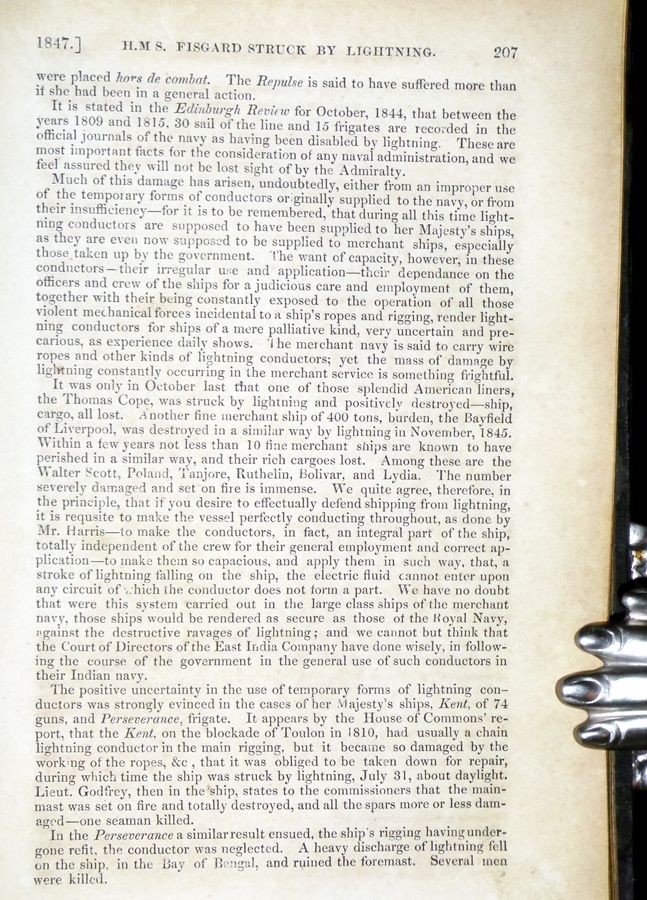 1847.] H.M S. FISGARD STRUCK BY LIGHTNING. 207
were placed hors de combat. The Repulse is said to have suffered more than
if she had been in a general action.
It is stated in the Edinburgh Review for October, 1844, that between the
years 1809 and 1815, 30 sail of the line and 15 frigates are recorded in the
official journals of the navy as having been disabled by lightning. These are
most important facts for the consideration of any naval administration, and we
feel assured they will not be lost sight of by the Admiralty.
Much of this damage has arisen, undoubtedly, either from an improper use
of the temporary forms of conductors originally supplied to the navy, or from
their insufficiency—for it is to be remembered, that during all this time light-
ning conductors are supposed to have been supplied to her Majesty's ships,
as they are even now supposed to be supplied to merchant ships, especially
those taken up by the government. The want of capacity, however, in these
conductors—their irregular use and application—their dependance on the
officers and crew of the ships for a judicious care and employment of them,
together with their being constantly exposed to the operation of all those
violent mechanical forces incidental to a ship's ropes and rigging, render light-
ning conductors for ships of a mere palliative kind, very uncertain and pre-
carious, as experience daily shows. The merchant navy is said to carry wire
ropes and other kinds of lightning conductors; yet the mass of damage by
lightning constantly occurring in the merchant service is something frightful.
It was only in October last that one of those splendid American liners,
the Thomas Cope, was struck by lightning and positively destroyed—ship,
cargo, all lost. Another fine merchant ship of 400 tons, burden, the Bayfield
of Liverpool, was destroyed in a similar way by lightning in November, 1845.
Within a few years not less than 10 fine merchant ships are known to have
perished in a similar way, and their rich cargoes lost. Among these are the
Walter Scott, Poland, Tanjore, Ruthelin, Bolivar, and Lydia. The number
severely damaged and set on fire is immense. We quite agree, therefore, in
the principle, that if you desire to effectually defend shipping from lightning,
it is requsite to make the vessel perfectly conducting throughout, as done by
Mr. Harris—to make the conductors, in fact, an integral part of the ship,
totally independent of the crew for their general employment and correct ap-
plication—to make them so capacious, and apply them in such way, that, a
stroke of lightning falling on the ship, the electric fluid cannot enter upon
any circuit of which the conductor does not form a part. We have no doubt
that were this system carried out in the large class ships of the merchant
navy, those ships would be rendered as secure as those of the Royal Navy,
against the destructive ravages of lightning; and we cannot but think that
the Court of Directors of the East India Company have done wisely, in follow-
ing the course of the government in the general use of such conductors in
their Indian navy.
The positive uncertainty in the use of temporary forms of lightning con-
ductors was strongly evinced in the cases of her Majesty's ships, Kent, of 74
guns, and Perseverance, frigate. It appears by the House of Commons' re-
port, that the Kent, on the blockade of Toulon in 1810, had usually a chain
lightning conductor in the main rigging, but it became so damaged by the
working of the ropes, &c , that it was obliged to be taken down for repair,
during which time the ship was struck by lightning, July 31, about daylight.
Lieut. Godfrey, then in the ship, states to the commissioners that the main-
mast was set on fire and totally destroyed, and all the spars more or less dam-
aged—one seaman killed.
In the Perseverance a similar result ensued, the ship's rigging having under-
gone refit, the conductor was neglected. A heavy discharge of lightning fell
on the ship, in the Bay of Bengal, and ruined the foremast. Several men
were killed.